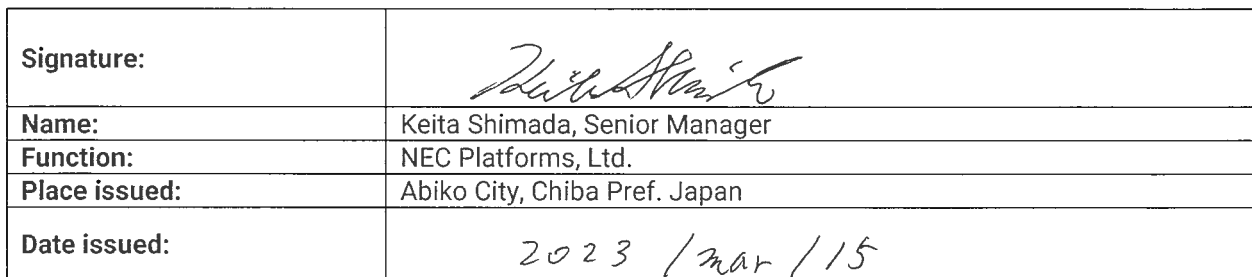 Signature: Keita Shimada
Name: Keita Shimada, Senior Manager
Function: NEC Platforms, Ltd.
Place issued: Abiko City, Chiba Pref. Japan
Date issued: 2023 / mar / 15